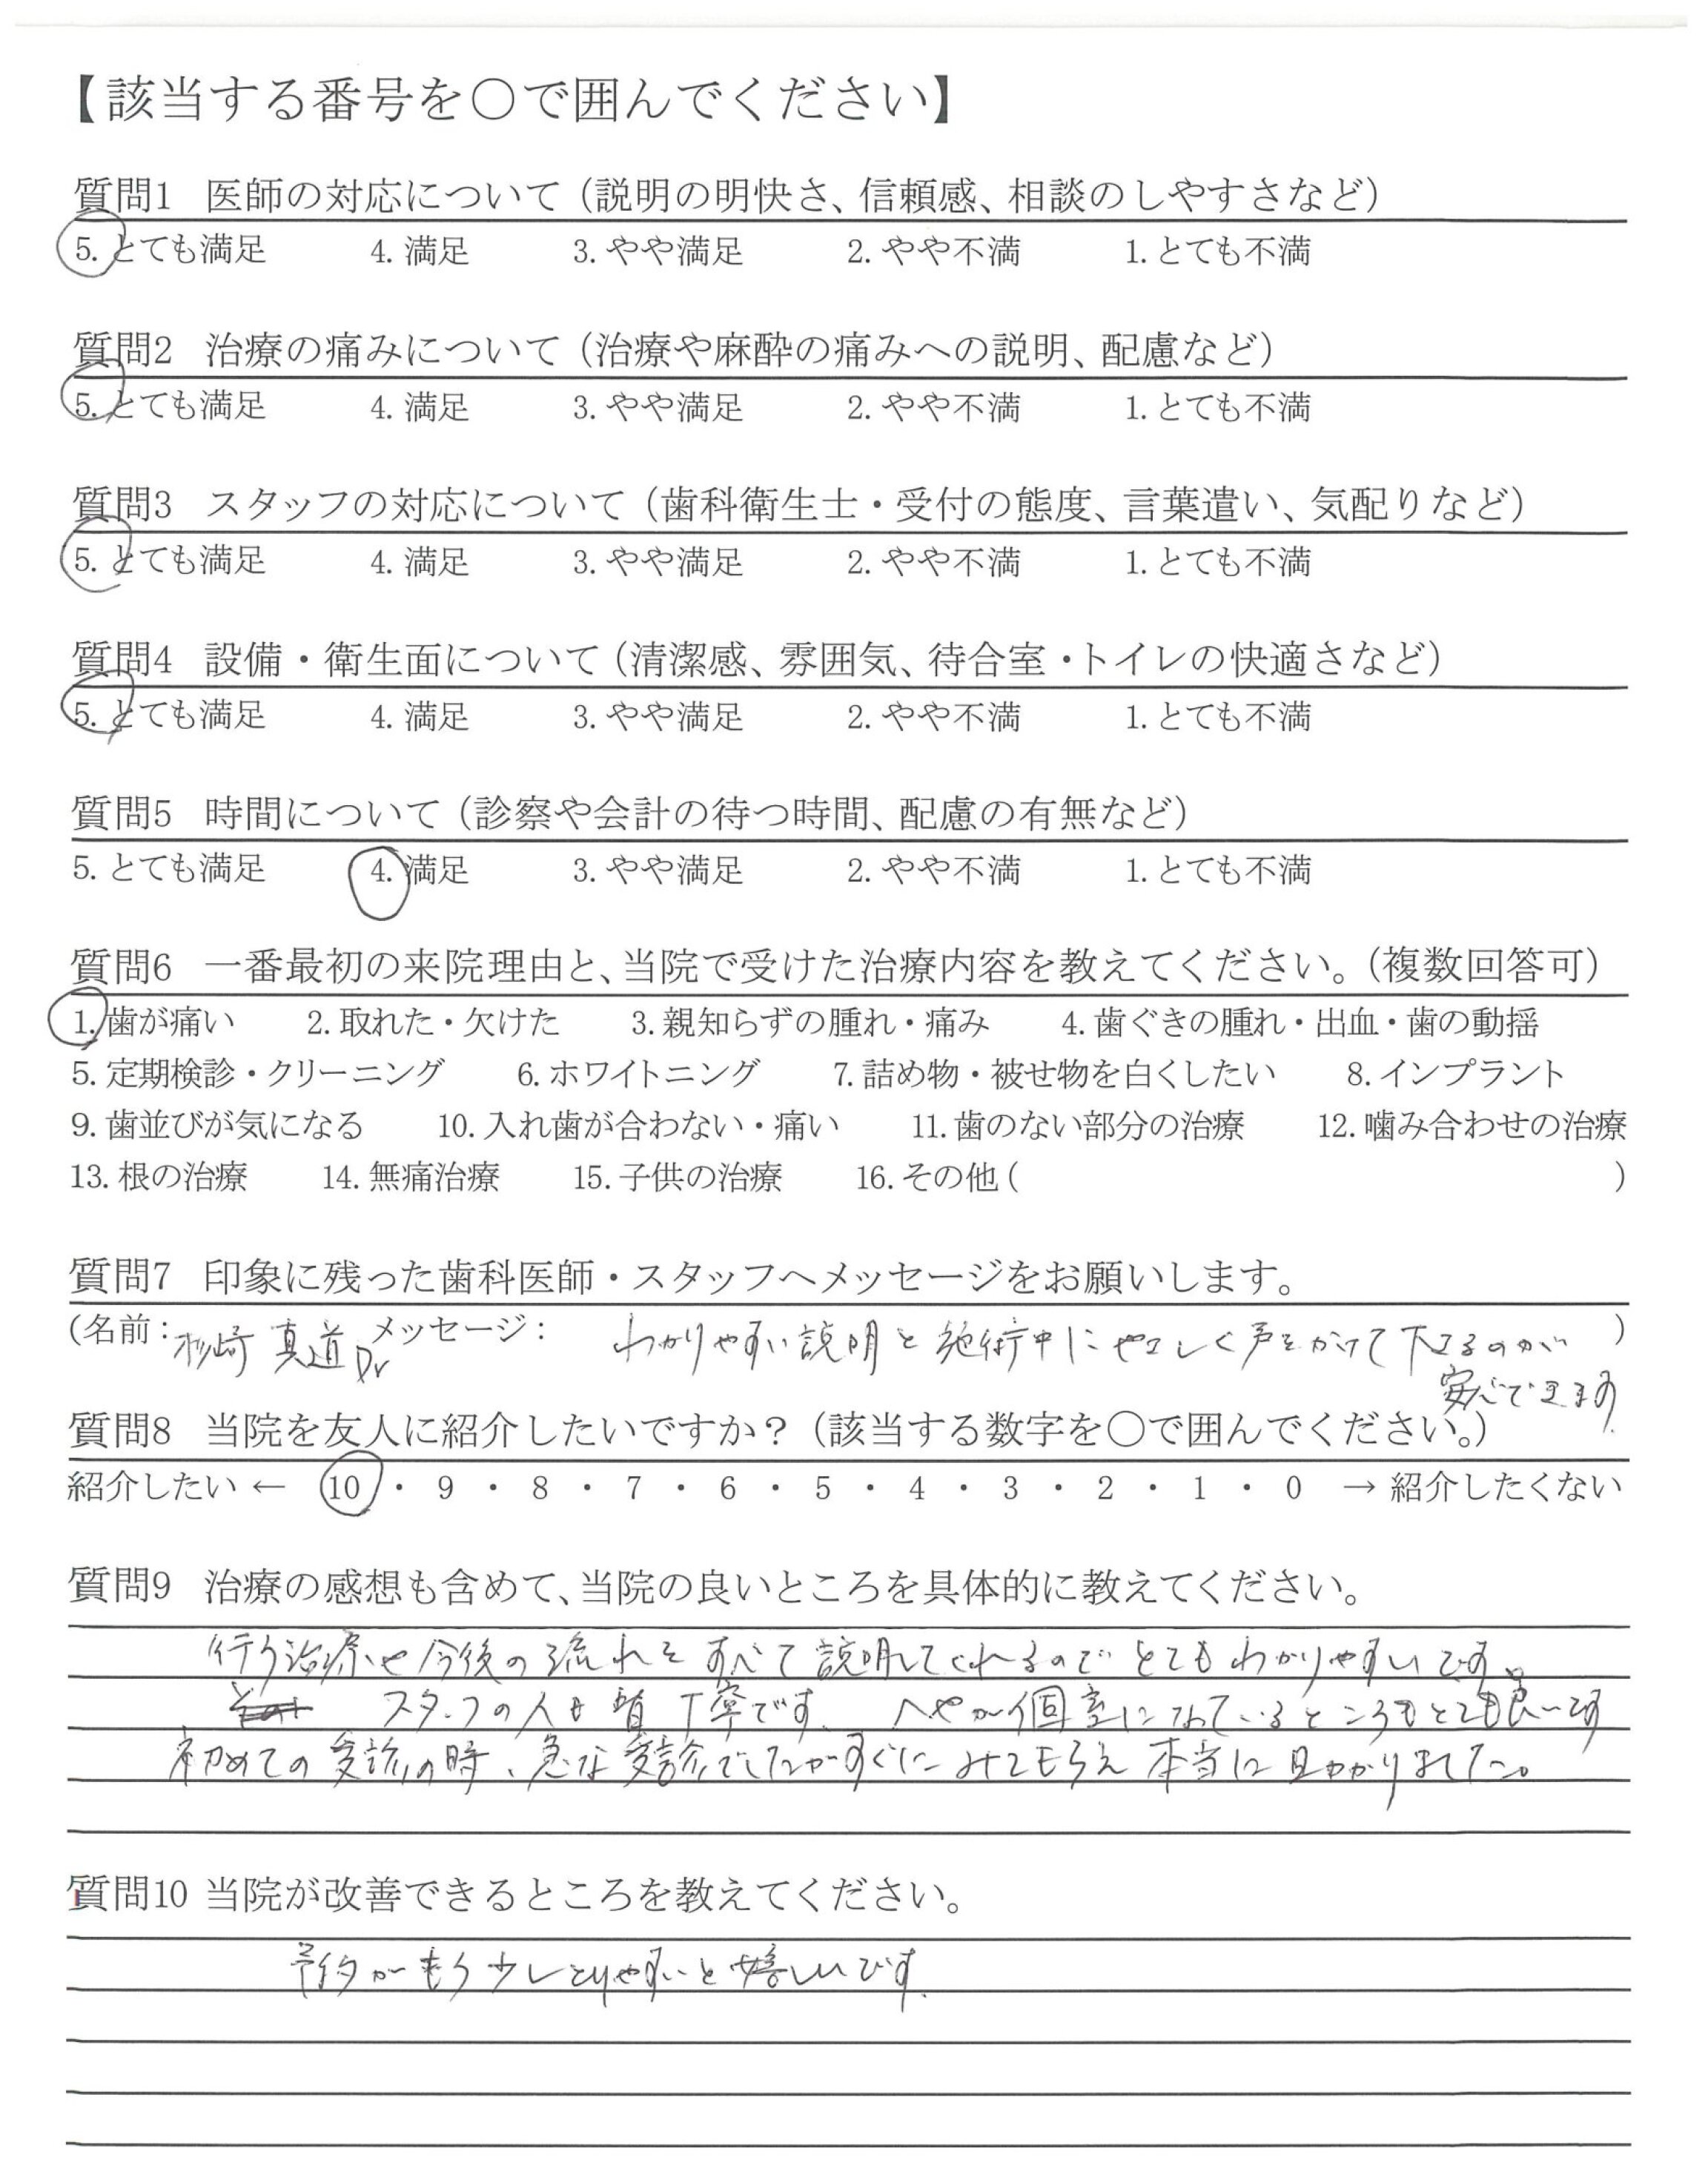 【該当する番号を○で囲んでください】
質問1 医師の対応について（説明の明快さ、信頼感、相談のしやすさなど）
5. とても満足 4. 満足 3. やや満足 2. やや不満 1. とても不満
質問2 治療の痛みについて（治療や麻酔の痛みへの説明、配慮など）
5. とても満足 4. 満足 3. やや満足 2. やや不満 1. とても不満
質問3 スタッフの対応について（歯科衛生士・受付の態度、言葉遣い、気配りなど）
5. とても満足 4. 満足 3. やや満足 2. やや不満 1. とても不満
質問4 設備・衛生面について（清潔感、雰囲気、待合室・トイレの快適さなど）
5. とても満足 4. 満足 3. やや満足 2. やや不満 1. とても不満
質問5 時間について（診察や会計の待つ時間、配慮の有無など）
5. とても満足 4. 満足 3. やや満足 2. やや不満 1. とても不満
質問6 一番最初の来院理由と、当院で受けた治療内容を教えてください。（複数回答可）
1. 歯が痛い 2. 取れた・欠けた 3. 親知らずの腫れ・痛み 4. 歯ぐきの腫れ・出血・歯の動揺
5. 定期検診・クリーニング 6. ホワイトニング 7. 詰め物・被せ物を白くしたい 8. インプラント
9. 歯並びが気になる 10. 入れ歯が合わない・痛い 11. 歯のない部分の治療 12. 噛み合わせの治療
13. 根の治療 14. 無痛治療 15. 子供の治療 16. その他 ( )
質問7 印象に残った歯科医師・スタッフへメッセージをお願いします。
(名前： 杉崎 真道Dr メッセージ： わかりやすい説明と施術中にやさしく声をかけて下さるのが )
安心できます.
質問8 当院を友人に紹介したいですか？（該当する数字を○で囲んでください。）
紹介したい ← 10 ・ 9 ・ 8 ・ 7 ・ 6 ・ 5 ・ 4 ・ 3 ・ 2 ・ 1 ・ 0 → 紹介したくない
質問9 治療の感想も含めて、当院の良いところを具体的に教えてください。
行う治療や今後の流れをすべて説明してくれるのでとてもわかりやすいです。
スタッフの人も皆丁寧です. へやが個室になっているところもとても良いです
初めての受診の時、急な受診でしたがすぐにみてもらえ本当に助かりました。
質問10 当院が改善できるところを教えてください。
予約がもう少しとりやすいと嬉しいです.